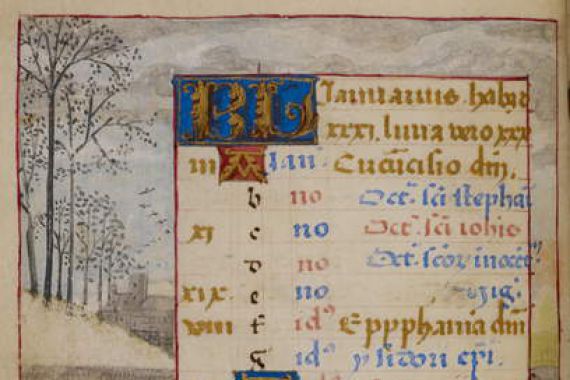 KL Ianuarius habet
XXXI. luna vero xxx
iii A Ian. Circuncisio dni.
b no Oct. sci stephani
xi c no Oct. sci iohis
d no Oct. scor innocen
xix. e no vigi.
viii f id Eppphania dni
g id ysidori epi.